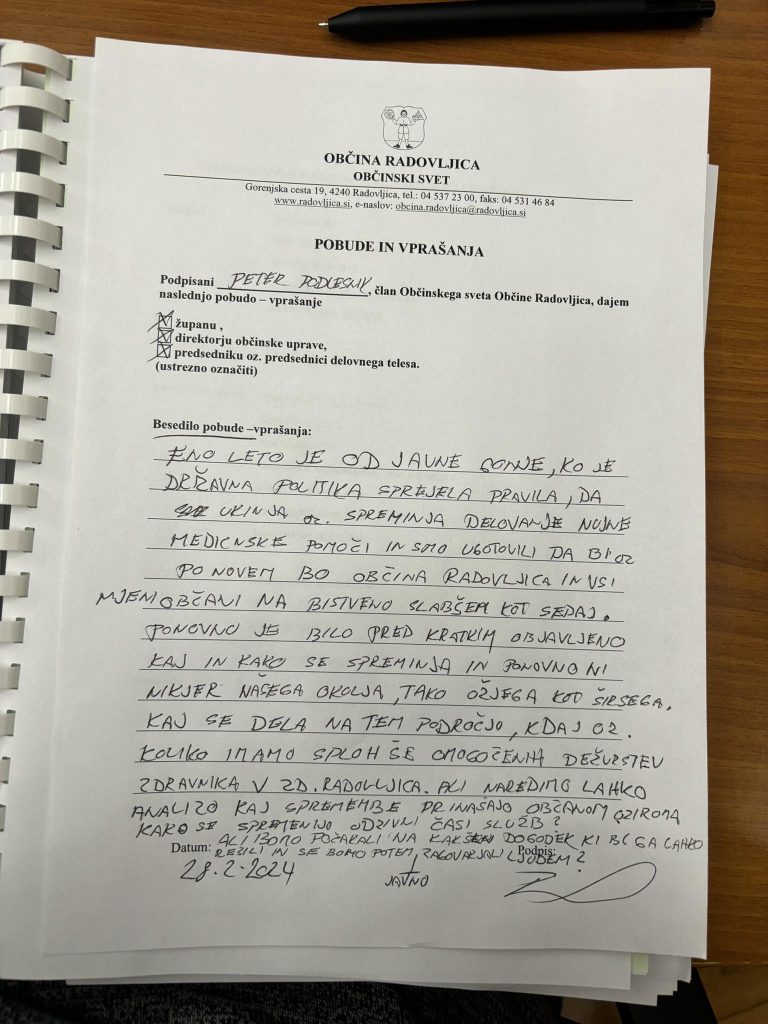 OBČINA RADOVLJICA
OBČINSKI SVET
Gorenjska cesta 19, 4240 Radovljica, tel.: 04 537 23 00, faks: 04 531 46 84
www.radovljica.si, e-naslov: obcina.radovljica@radovljica.si
POBUDE IN VPRAŠANJA
Podpisani PETER PODLESNIK, član Občinskega sveta Občine Radovljica, dajem
naslednjo pobudo – vprašanje
županu ,
direktorju občinske uprave,
predsedniku oz. predsednici delovnega telesa.
(ustrezno označiti)
Besedilo pobude –vprašanja:
ENO LETO JE OD JAVNE SONJE, KO JE
DRŽAVNA POLITIKA SPREJELA PRAVILA, DA
UKINJA oz. SPREMINJA DELOVANJE NUJNE
MEDICNSKE POMOČI IN SMO UGOTOVILI DA BI oz
PO NOVEM BO OBČINA RADOVLJICA IN VSI
NJENI OBČANI NA BISTVENO SLABŠEM KOT SEDAJ.
PONOVNO JE BILO PRED KRATKIM OBJAVLJENO
KAJ IN KAKO SE SPREMINJA IN PONOVNO NI
NIKJER NAŠEGA OKOLJA, TAKO OŽJEGA KOT ŠIRSEGA.
KAJ SE DELA NA TEM PODROČJO, KDAJ OZ.
KOLIKO IMAMO SPLOH ŠE OMOGOČENIH DEŽURSTEV
ZDRAVNIKA V ZD. RADOVLJICA. ALI NAREDIMO LAHKO
ANALIZO KAJ SPREMEMBE PRINAŠAJO OBČANOM OZIROMA
KAKO SE SPREMENIJO ODZIVNI ČASI SLUŽB?
ALI BOMO POČAKALI NA KAKŠEN DOGODEK KI BI GA LAHKO
REŠILI IN SE BOMO POTEM JAVNO ZAGOVARJALI LJUDEM?
Datum: Podpis:
28.2.2024